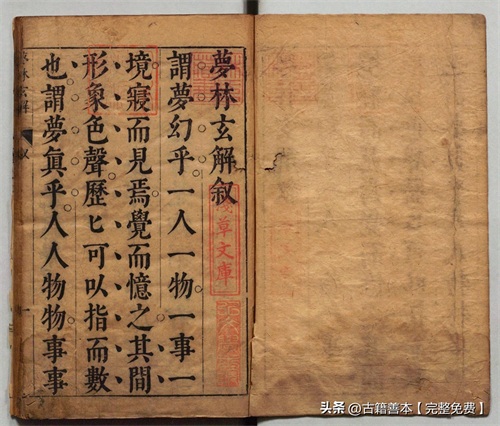 夢林玄解叙
謂夢幻乎一人一物一事一
境寢而見焉覺而憶之其間
形象色聲歷匕可以指而數
也謂夢眞乎人人物物事事
林玄解
叙
一
草文庫
头条 @古籍善本【完整免费】